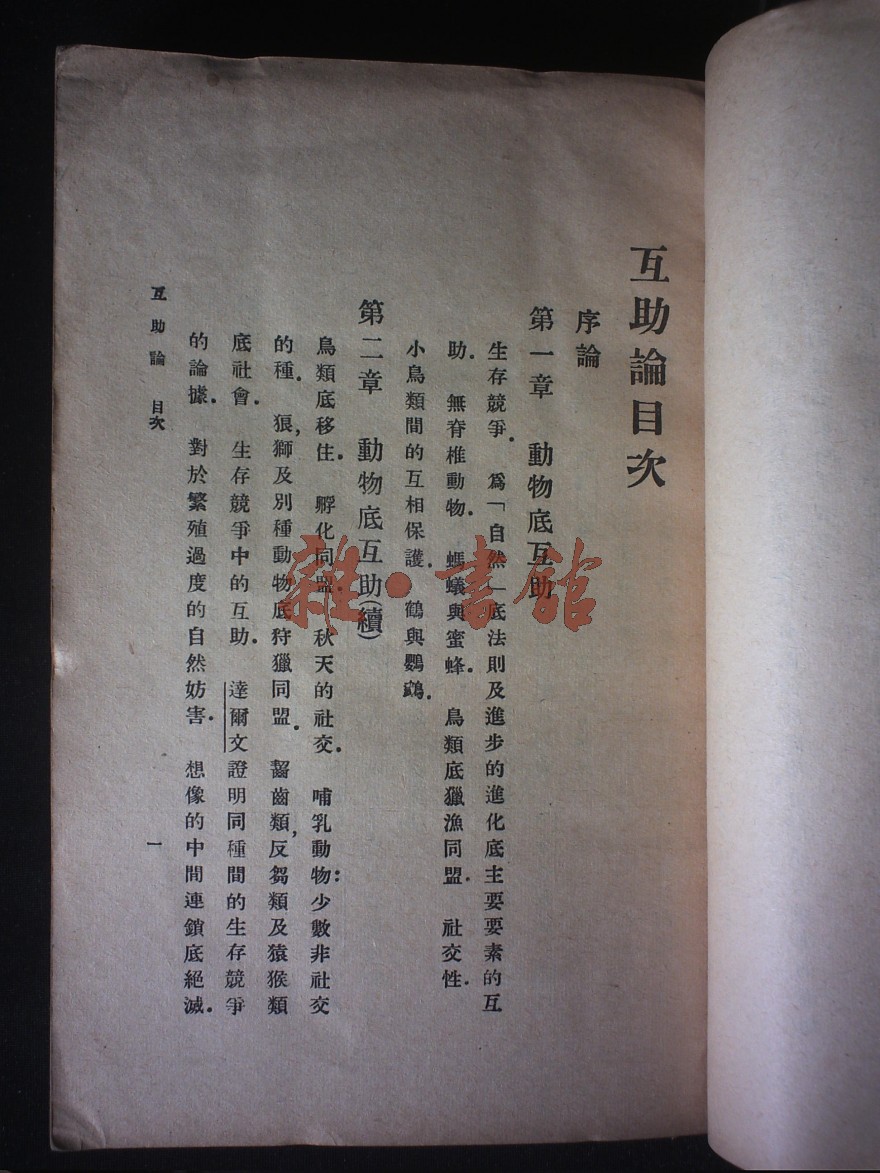 互助論目次
序論
第一章　動物底互助
生存競爭.　爲「自然」底法則及進步的進化底主要要素的互
助.　無脊椎動物.　螞蟻與蜜蜂.　鳥類底獵漁同盟.　社交性.
小鳥類間的互相保護.　鶴與鸚鵡.
第二章　動物底互助(續)
鳥類底移住.　孵化同盟.　秋天的社交.　哺乳動物:少數非社交
的種.　狼,獅及別種動物底狩獵同盟.　齧齒類,反芻類及猿猴類
底社會.　生存競爭中的互助.　達爾文證明同種間的生存競爭
的論據.　對於繁殖過度的自然妨害.　想像的中間連鎖底絕滅.
互助論　目次
一
雜·書館